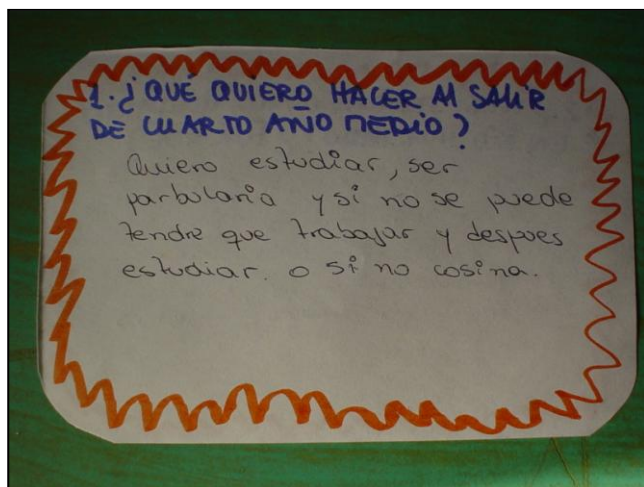 1. ¿QUÉ QUIERO HACER AL SALIR
DE CUARTO AÑO MEDIO?
Quiero estudiar, ser
parbularia y si no se puede
tendre que trabajar y despues
estudiar. o si no cosina.